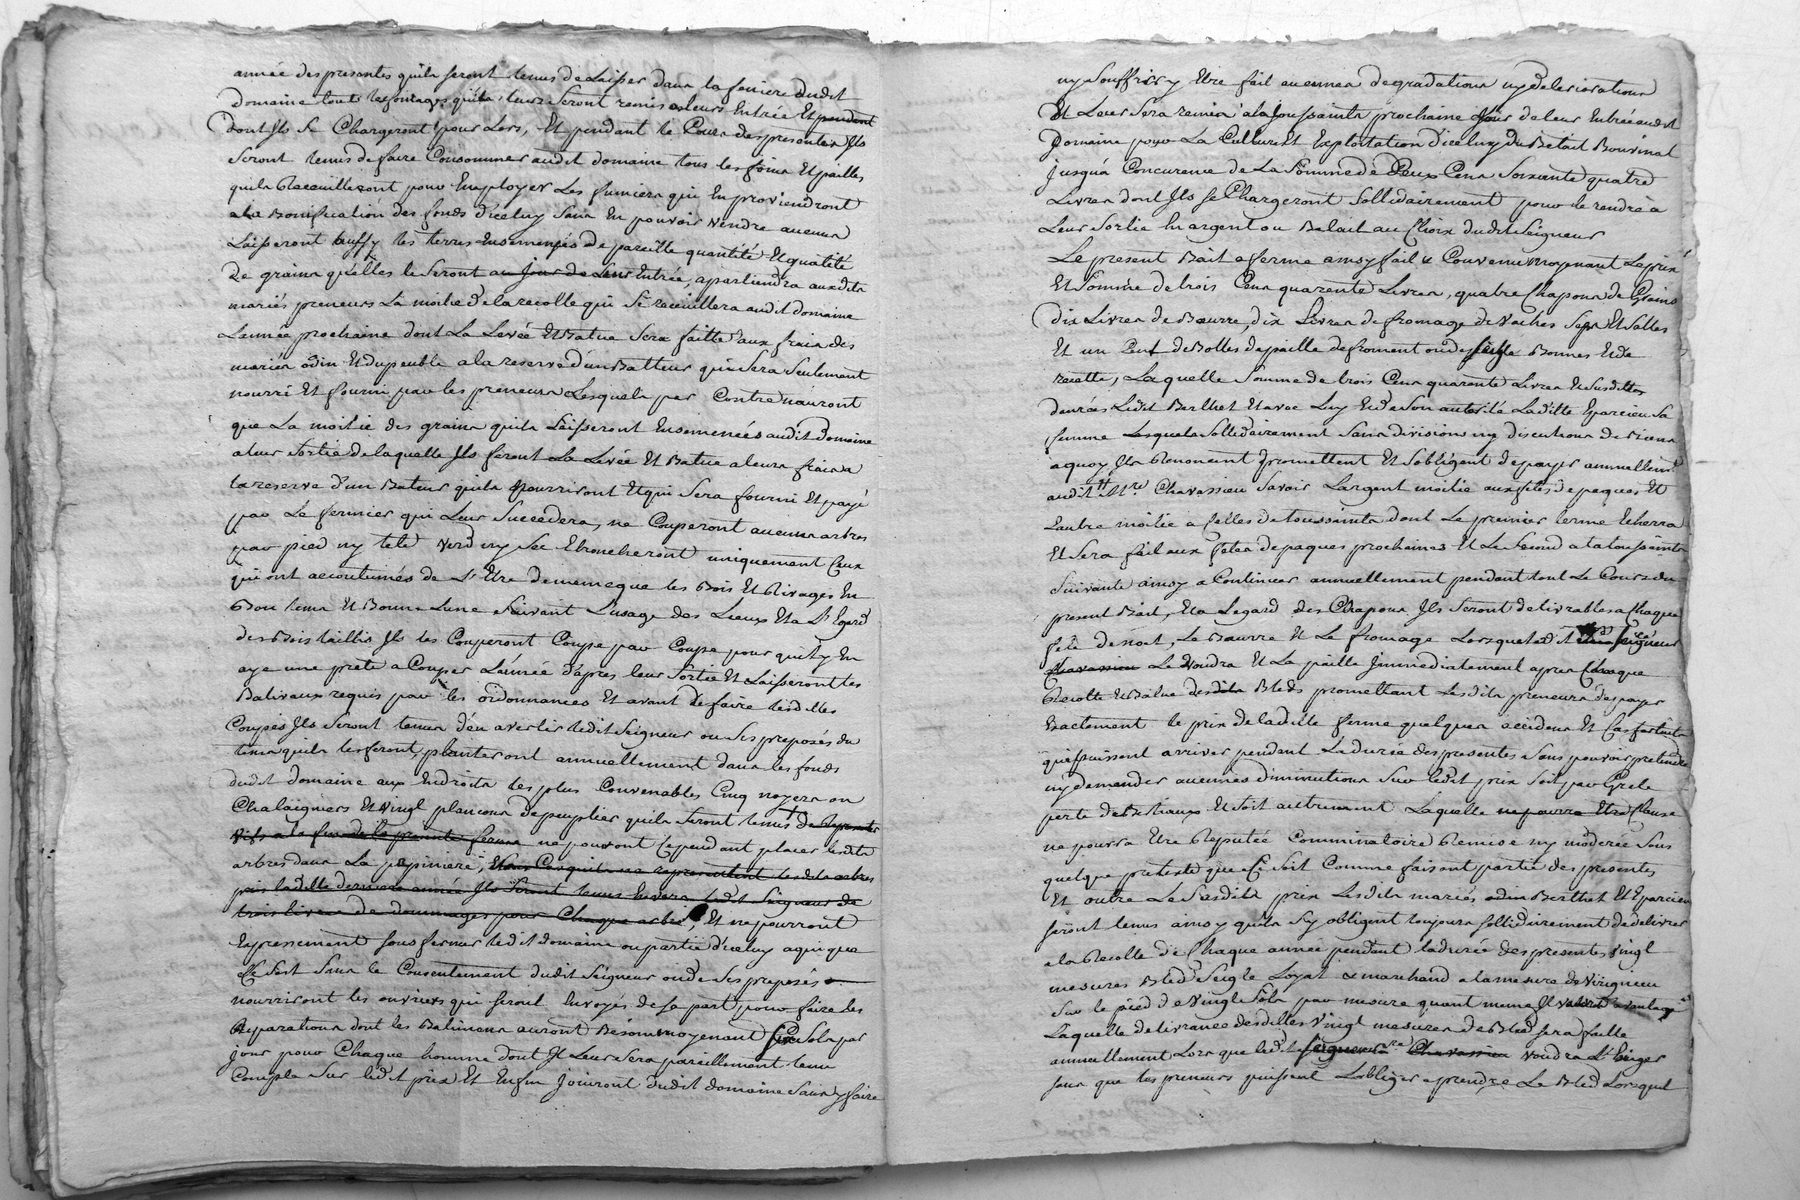 année des presentes quils seront tenus de Laisser dans la feniere dudit
domaine tous les fourages quils leurs seront remis a leurs Entrée Et pendent
dont Ils se Chargeront pour Lors, Et pendant le Cours des presentes Ils
seront tenus de faire Consommer audit domaine tous les foins Et pailles
quils Receuilleront pour Employer Les fumiers qui En proviendront
a la Bonification des fonds diceluy sans En pouvoir vendre aucuns
Laisseront aussy les terres Ensemencés de pareille quantité Et qualité
De grains quelles le seront au Jour de Leur Entrée, apartiendra auxdits
mariés preneurs La moitié de la recolte qui se receuillera audit domaine
L'année prochaine dont La Levée Et Batue sera faitte aux frais des
mariés odin Et dupeuble a la reserve d'un Batteur qui sera seulement
nourri Et fourni par les preneurs Lesquels par Contre nauront
que La moitié des grains quils Laisseront Ensemencés audit Domaine
a leur sortie de laquelle Ils feront La Levée Et Batue a leurs frais a
la reserve d'un Bateur quils Nourriront Et qui sera fourni Et payé
par Le fermier qui Leur succedera, ne Couperont aucuns arbres
par pied ny tete verd ny sec Ebrancheront uniquement Ceux
qui ont accoutumés de L'Etre de meme que les Bois Et Rivages En
Bon tems Et Bonne Lune suivant L'usage des Lieux Et a L'Egard
des Bois taillis Ils les Couperont Coupe par Coupe pour quil y En
aye une prete a Couper L'année d'apres leur sortie Et Laisseront les
Baliveaux requis par les ordonnances Et avant de faire lesdittes
Coupes Ils seront tenus d'en avertir ledit seigneur ou ses preposés du
tems quils les feront, planteront annuellement dans les fonds
dudit domaine aux Endroits les plus Convenables Cinq noyers ou
Chataigniers Et vingt plançons de peuplier quils seront tenus de Representer
vifs a la fin de la presente ferme ne pouvant Cependant placer lesdits
arbres dans La pepiniere, Et au Cas quils ne representent lesdits arbres
pris laditte derniere année Ils seront tenus Envers ledit Seigneur de
trois livres de dommages pour Chaque arbre, Et ne pourront
Expressement sous fermer ledit domaine ou partie diceluy a qui que
Ce soit sans le Consentement dudit seigneur ou de ses preposés
nourriront les ouvriers qui seront Envoyés de sa part pour faire les
Reparations dont les Batimens auront Besoin moyenant sols par
jour pour Chaque homme dont Il Leur sera pareillement tenu
Compte sur ledit prix Et Enfin Jouiront dudit domaine sans y faire
ny souffrir y Etre fait aucunes degradations ny deteriorations
Et Leur sera remis a la toussaints prochaine Jour de leur Entrée audit
Domaine pour La Culture Et Exploitation diceluy du Betail Bouvinal
jusqua Concurence de La somme de Deux Cens soixante quatre
Livres dont Ils se Chargeront sollidairement pour le rendre a
Leur sortie En argent ou Betail au Choix dudit seigneur
Le present Bail a ferme ainsy fait & Convenu moyenant Le prix
Et somme de trois Cens quarente Livres, quatre Chapons de
dix Livres de Beurre, dix Livres de fromage de vaches Et salles
Et un Cent de Bottes de paille de froment ou de seigle Bonnes Et de
recette, Laquelle somme de trois Cens quarante Livres Et susdittes
denrées Ledit Berthet Et avec Luy Et de son autorité Laditte Eparcieu sa
femme Lesquels sollidairement sans division ny discution de Biens
a quoy Ils Renoncent promettent Et sobligent de payer annuellemt
audit Mre Chavassieu savoir Largent moitié aux fetes de paques Et
Lautre moitié a celles de toussaints dont Le premier terme Echerra
Et sera fait aux fetes de paques prochaines Et Le second a la toussaints
suivante ainsy a Continuer annuellement pendant tout Le Cours du
present Bail, Et a Legard des Chapons Ils seront delivrables a Chaque
fete de noel, Le Beurre Et Le fromage Lorsque ledit seigneur
Chavassieu Le voudra Et La paille Immediatement apres Chaque
Recolte Et Batue desdits Bleds promettant Lesdits preneurs de payer
Exactement le prix de laditte ferme quelques accidens Et Cas fortuits
qui puissent arriver pendant La durée des presentes sans pouvoir pretendre
ny demander aucunes diminutions sur ledit prix soit par Grele
perte de Bestiaux Et soit autrement Laquelle ne pourra Etre Clause
ne pourra Etre Reputée Comminatoire Remise ny moderée sous
quelque pretexte que Ce soit Comme faisant partie des presentes
Et outre Le susdit prix Lesdits mariés odin Berthet Et Eparcieu
seront tenus ainsy quils sy obligent toujours sollidairement de delivrer
a la Recolte de Chaque année pendant la durée des presentes vingt
mesures Bled seigle Loyal & marchand a la mesure de Virignieu
sur le pied de vingt sols par mesure quant meme Il vaudroit davantage
Laquelle delivrance desdittes vingt mesures de Bled sera faitte
annuellement Lors que ledit seigneur Chavassieu voudra L'Exiger
sans que les preneurs puissent L'obliger a prendre Le Bled Lorsquil